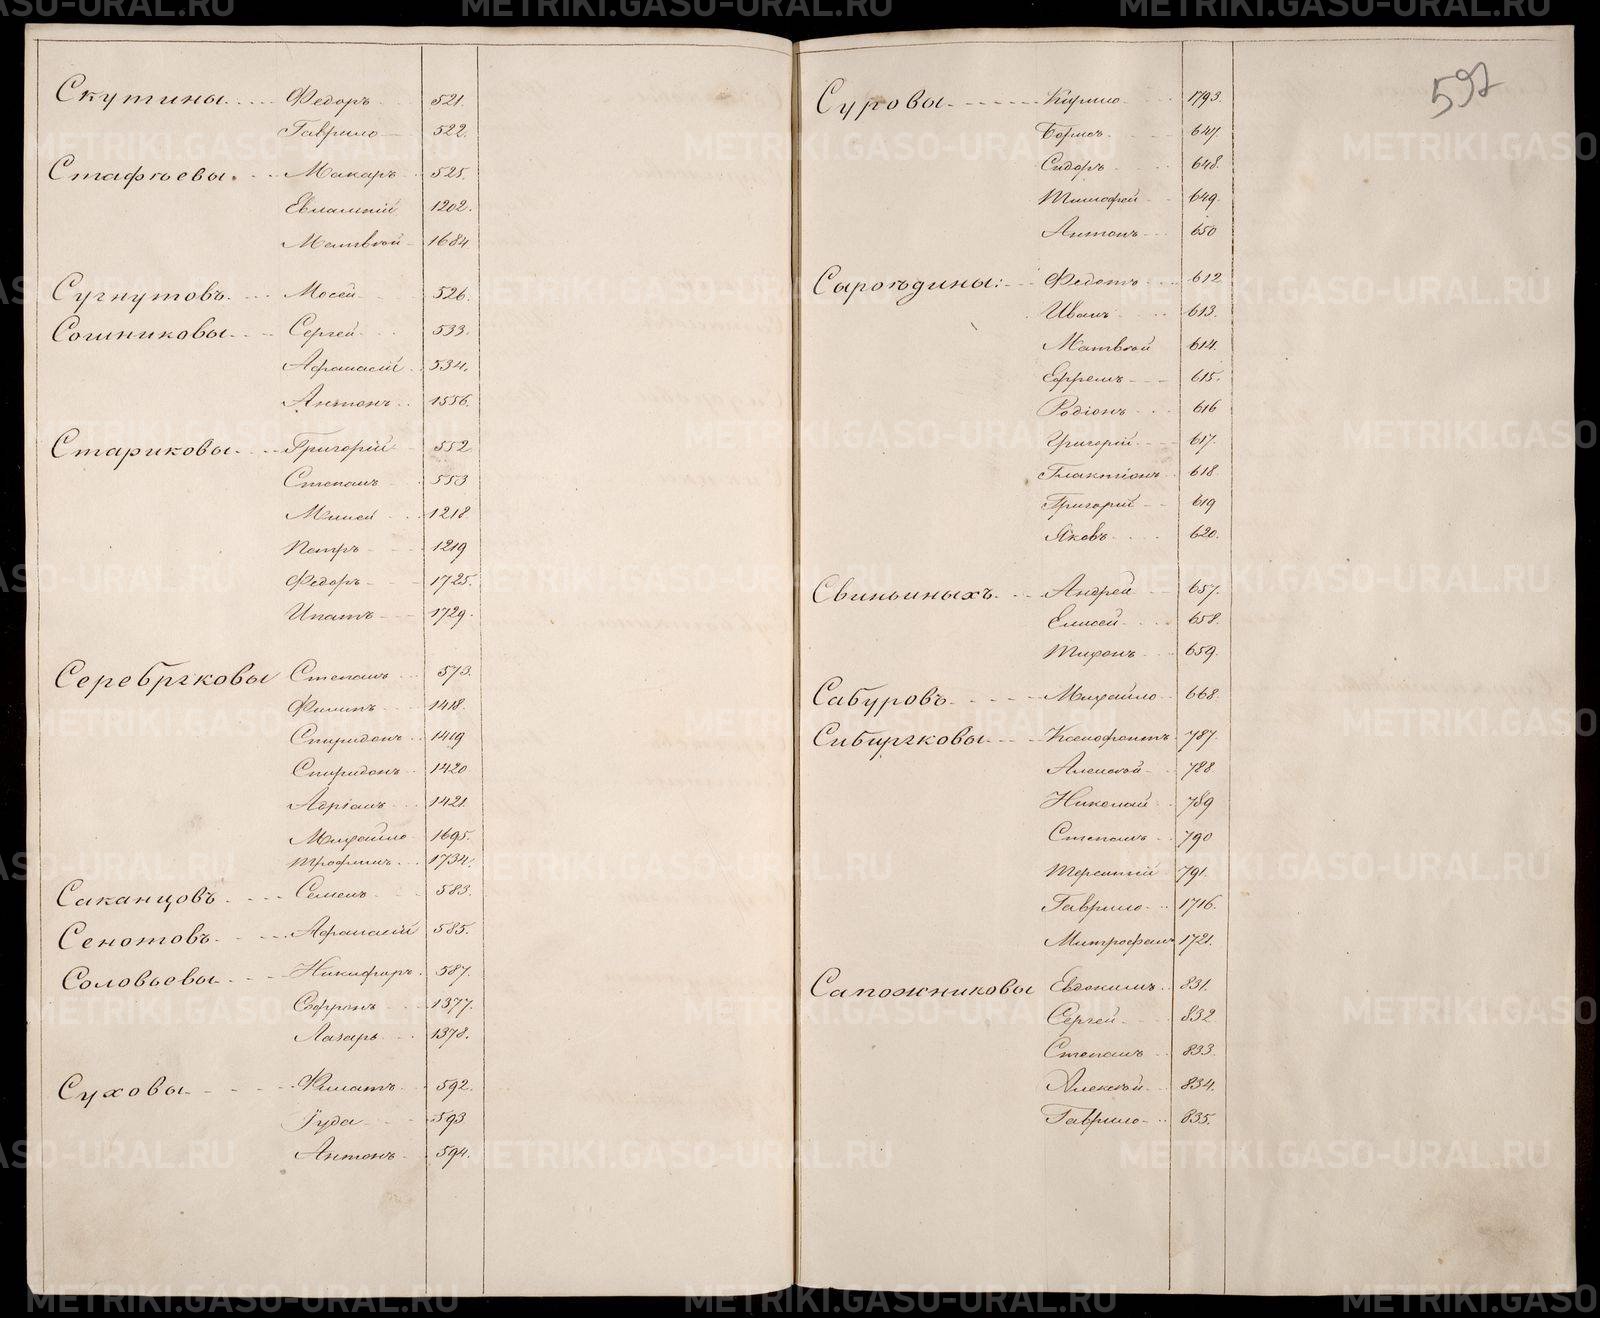 Скутины Федоръ 521.
Гаврило 522.
Стафѣевы Макаръ 525.
Евлампій 1202.
Матвѣй 1684
Сугнутовъ Мосей 526.
Сошниковы Сергей 533.
Афанасій 534.
Антонъ 1556.
Стариковы Григорій 552
Степанъ 553
Миней 1218
Петръ 1219
Федоръ 1725.
Ипатъ 1729.
Серебряковы Степанъ 573.
Филипъ 1418.
Спиридонъ 1419
Спиридонъ 1420
Адріанъ 1421.
Михайло 1695.
Трофимъ 1734.
Саканцовъ Семенъ 583.
Сенотовъ Афанасій 585.
Соловьевы Никифоръ 587.
Софронъ 1377.
Лазарь 1378.
Суховы Филатъ 592.
Іуда 593
Антонъ 594.
592
Суровы Кирило 1793.
Борисъ 647
Сидоръ 648.
Тимофей 649.
Антонъ 650
Сароѣдины: Федотъ 612
Иванъ 613.
Матвѣй 614.
Ефремъ 615.
Родіонъ 616
Григорій 617.
Глактіонъ 618
Григорій 619
Яковъ 620.
Свиньиныхъ Андрей 657.
Елисей 658.
Тихонъ 659.
Сабуровъ Михайло 668.
Сибиряковы Ксенофонтъ 787.
Алексѣй 788
Николай 789
Степанъ 790
Терентій 791.
Гаврило 1716.
Митрофанъ 1721.
Сапожниковы Евдокимъ 831.
Сергей 832
Степанъ 833.
Алексѣй 834.
Гаврило 835.
METRIKI.GASO-URAL.RU